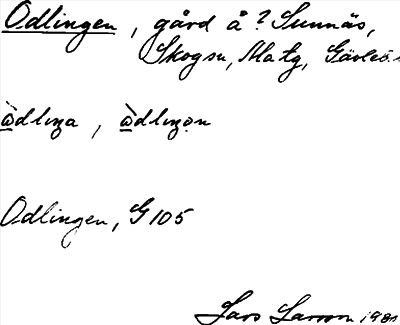 Odlingen, gård å? Sunnäs,
Skogsu, Matg, Gävleb.
òdlıŋa, òdlıŋən
Odlingen, G 105
Lars Larsson 1981